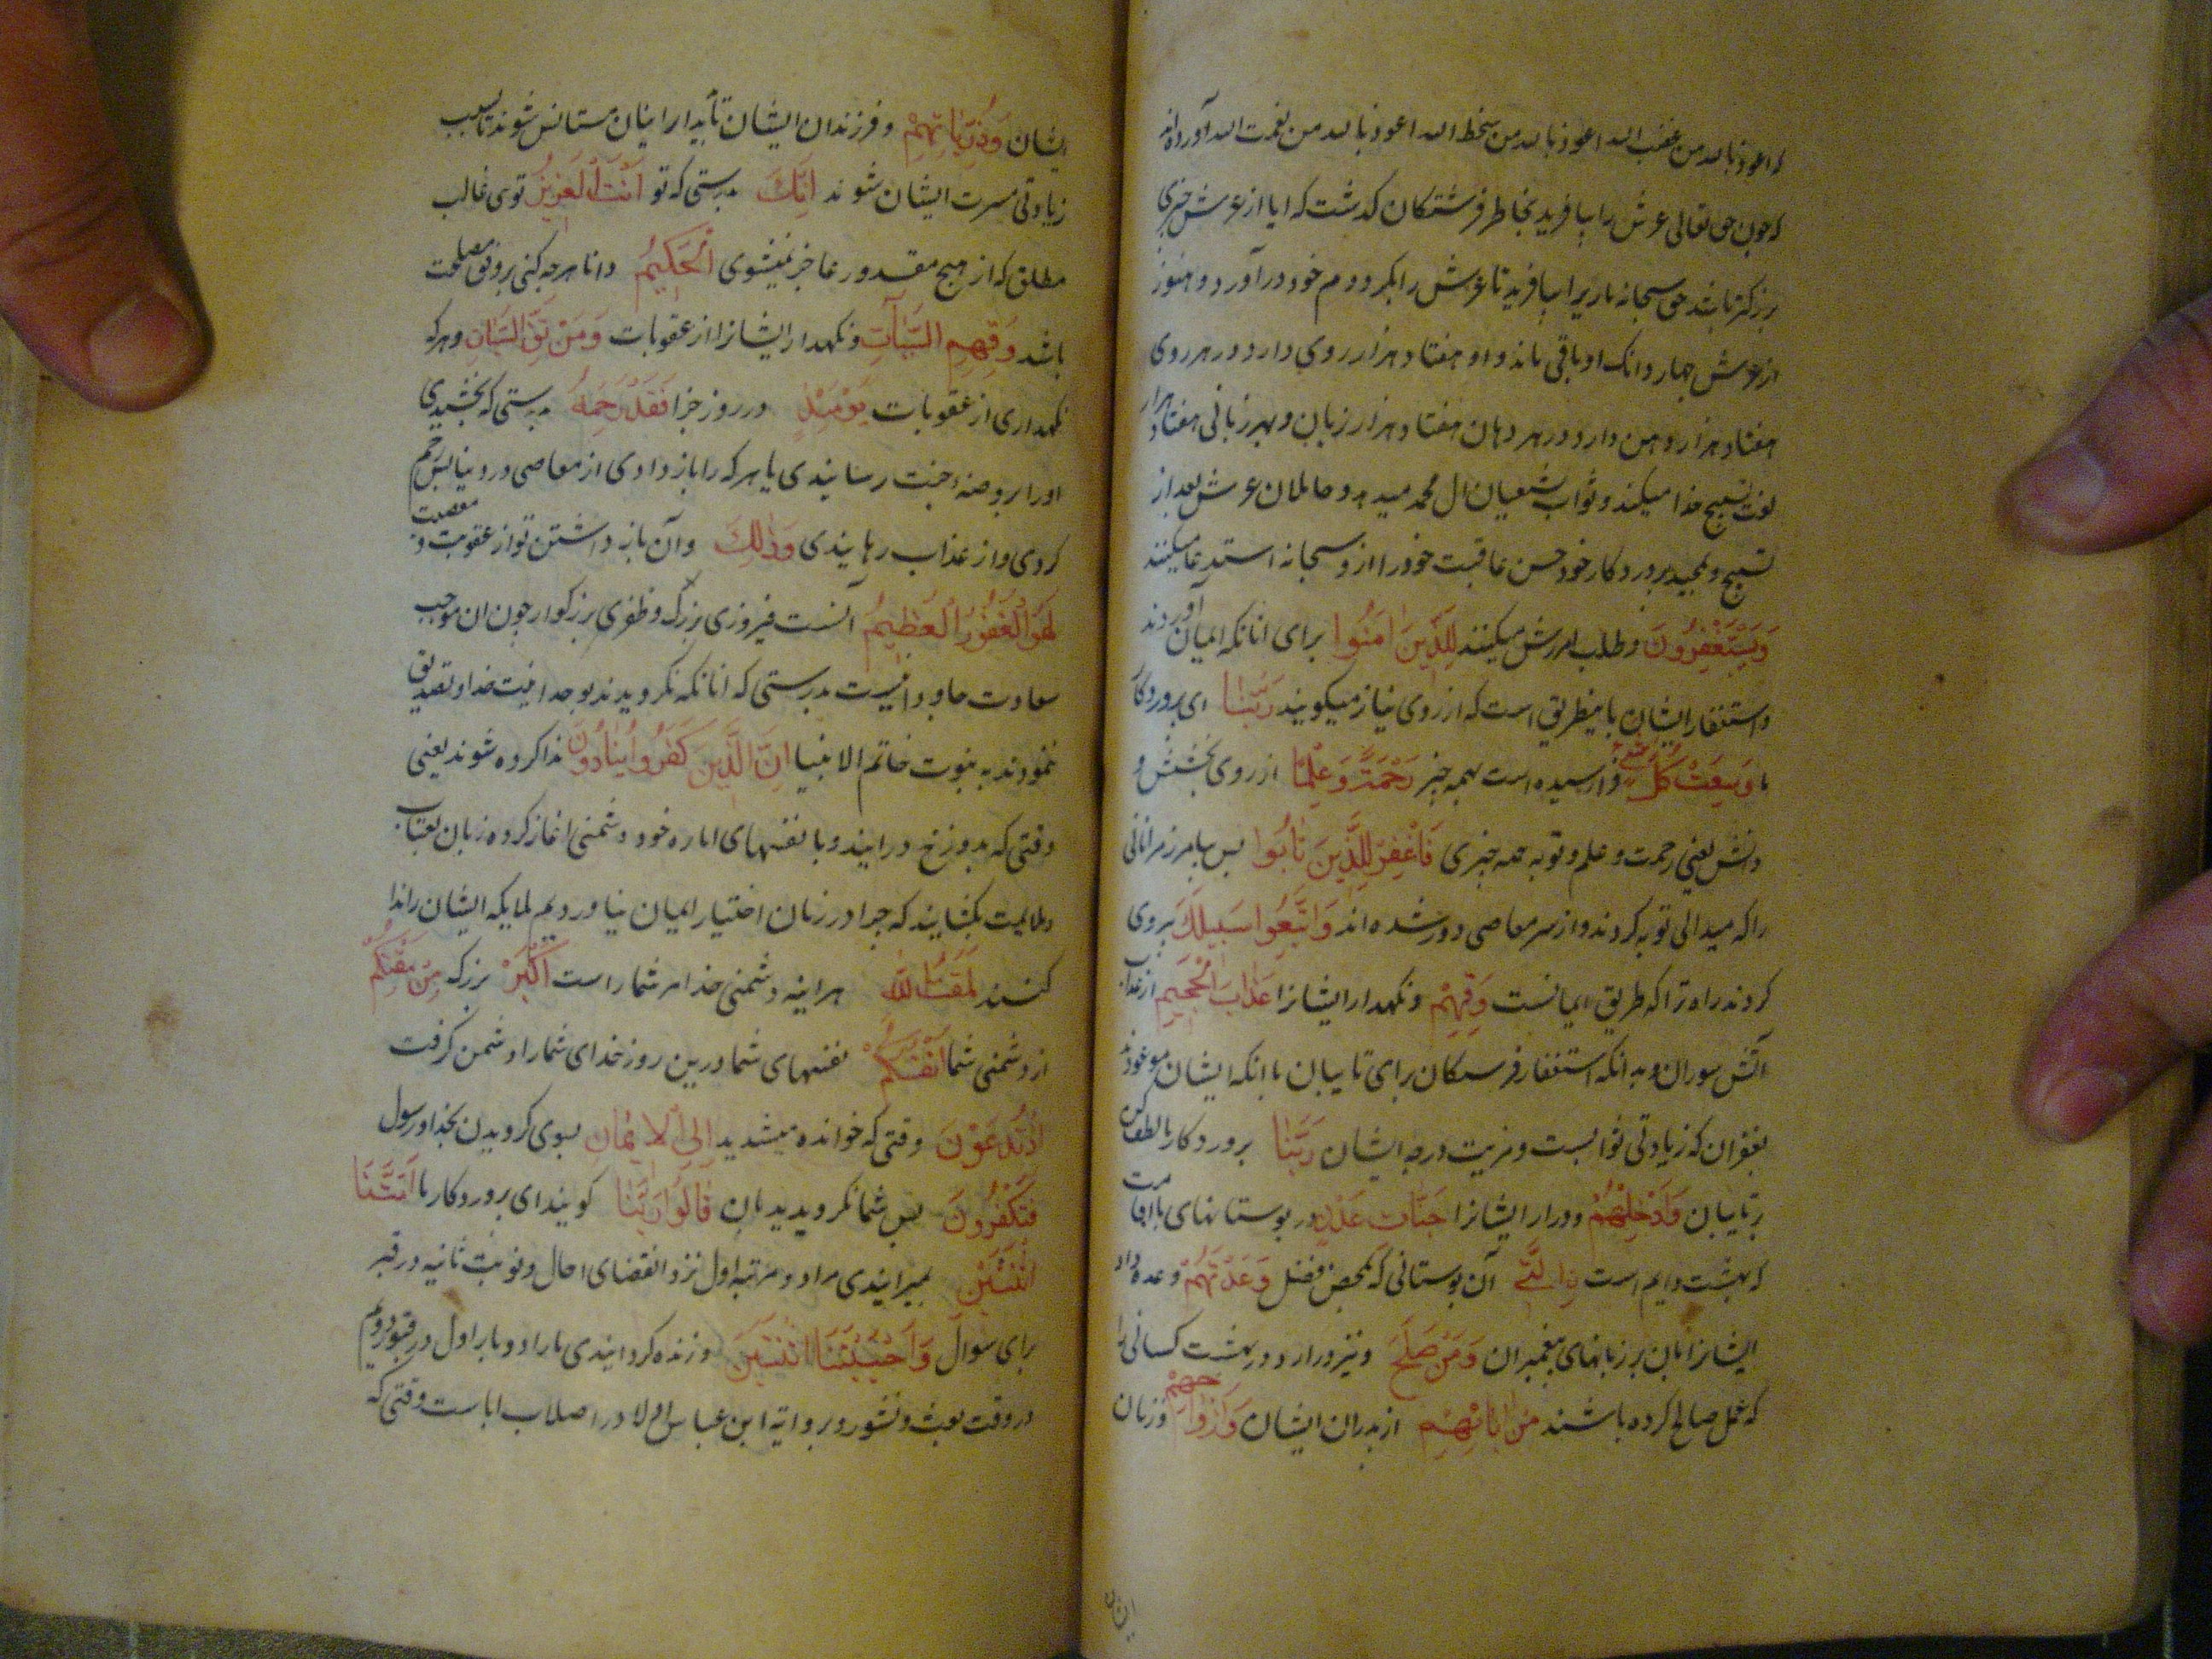 که اعوذ بالله من غضب الله اعوذ بالله من سخط الله اعوذ بالله من نقمت الله آورده اند
که چون حق تعالی عرش را بیافرید بخاطر فرشتکان کذشت که ایا از عرش چیزی
بزرکتر باشد حق سبحانه ماریرا بیافرید تا عرش را بکرد دم خود درآورد و هنوز
از عرش چهار دانک او باقی ماند و او هفتاد هزار روی دارد و در هر روی
هفتاد هزار دهن دارد و در هر دهان هفتاد هزار زبان و بهر زبانی هفتاد هزار
لغت تسبیح خدا میکند و ثواب بشیعیان ال محمد میدهد و حاملان عرش بعد از
تسبیح و تمجید پروردکار خود حسن عاقبت خود را از و سبحانه استدعا میکنند
وَيَسْتَغْفِرُونَ و طلب امرزش میکنند لِلَّذِينَ اٰمَنُوا برای انانکه ایمان آوردند
و استغفار ایشان باینطریق است که از روی نیاز میکویند رَبَّنٰا ای پروردکار
ما وَسِعْتَ كُلَّ شَيْءٍ فرارسیده است بهمه چیز رَحْمَةً وَعِلْمًا از روی بخشش و
دانش یعنی رحمت و علم و تو به همه چیزی فَاغْفِرْ لِلَّذِينَ تٰابُوا پس بیامرز مر انانی
را که میدانی توبه کردند و از سر معاصی دور شده اند وَاتَّبَعُوا سَبِيلَكَ پیروی
کردند راه ترا که طریق ایمانست وَقِهِمْ و نکهدار ایشانرا عَذٰابَ الْجَحِيمِ از عذاب
آتش سوزان و بدانکه استغفار فرشتکان برای تایبان با انکه ایشان موعودند
بغفران که زیادتی ثوابست و مزیت درجه ایشان رَبَّنٰا پروردکار با لطف کن
بر تایبان وَاَدْخِلْهُمْ و درار ایشانرا جَنّٰاتِ عَدْنٍ در بوستانهای با اقامت
که بهشت دایم است نِ الَّتِي آن بوستانی که بمحض فضل وَعَدْتَهُمْ وعده داد
ایشانرا بان بر زبانهای پیغمبران وَمَنْ صَلَحَ و نیز درار در بهشت کسانی را
که عمل صالح کرده باشند مِنْ اٰبٰائِهِمْ از پدران ایشان وَاَزْوٰاجِهِمْ و زنان
ایشان وَذُرِّيّٰاتِهِمْ و فرزندان ایشان تا بدیدار اینان مستانس شوند تا سبب
زیادتی مسرت ایشان شوند اِنَّكَ بدرستی که تو اَنْتَ الْعَزِيزُ توی غالب
مطلق که از هیچ مقدور عاجز نمیشوی الْحَكِيمُ دانا هر چه کنی بر وفق مصلحت
باشد وَقِهِمُ السَّيِّاٰتِ و نکهدار ایشانرا از عقوبات وَمَنْ تَقِ السَّيِّاٰتِ و هر که
نکهداری از عقوبات يَوْمَئِذٍ در روز جزا فَقَدْ رَحِمْتَهُ بدرستی که بخشیدی
اورا بروضه جنت رسانیدی یا هر که را باز دادی از معاصی در دنیا پس رحم
کردی و از عذاب رهانیدی وَذٰلِكَ و آن باز داشتن تو از عقوبت و معصیت
هُوَ الْفَوْزُ الْعَظِيمُ آنست فیروزی بزرک و ظفری بزرکوار چون ان موجب
سعادت جاودانیست بدرستی که انانکه نکرویدند بوحدانیت خدا و تصدیق
ننمودند به نبوت خاتم الانبیا اِنَّ الَّذِينَ كَفَرُوا يُنٰادَوْنَ ندا کرده شوند یعنی
وقتی که بدوزخ درایند و با نفسهای اماره خود دشمنی اغاز کرده زبان بعتاب
و ملامت بکشایند که چرا در زمان اختیار ایمان نیاوردیم ملایکه ایشان را ندا
کنند لَمَقْتُ اللّٰهِ هراینه دشمنی خدا مر شما راست اَكْبَرُ بزرکه مِنْ مَقْتِكُمْ
از دشمنی شما اَنْفُسَكُمْ نفسهای شما درین روز خدای شما را دشمن کرفت
اِذْ تُدْعَوْنَ وقتی که خوانده میشدید اِلَى الْاِيمٰانِ بسوی کرویدن بخدا و رسول
فَتَكْفُرُونَ پس شما نکرویدید بان قٰالُوا رَبَّنٰا کویند ای پروردکار ما اَمَتَّنَا
اثْنَتَيْنِ بمیرانیدی مارا دو مرتبه اول نزد انقضای اجال و نوبت ثانیه در قبر
برای سوال وَاَحْيَيْتَنَا اثْنَتَيْنِ و زنده کردانیدی مارا دو بار اول در قبور دویم
در وقت بعث و نشور و بروایة ابن عباس اولا در اصلاب اباست وقتی که